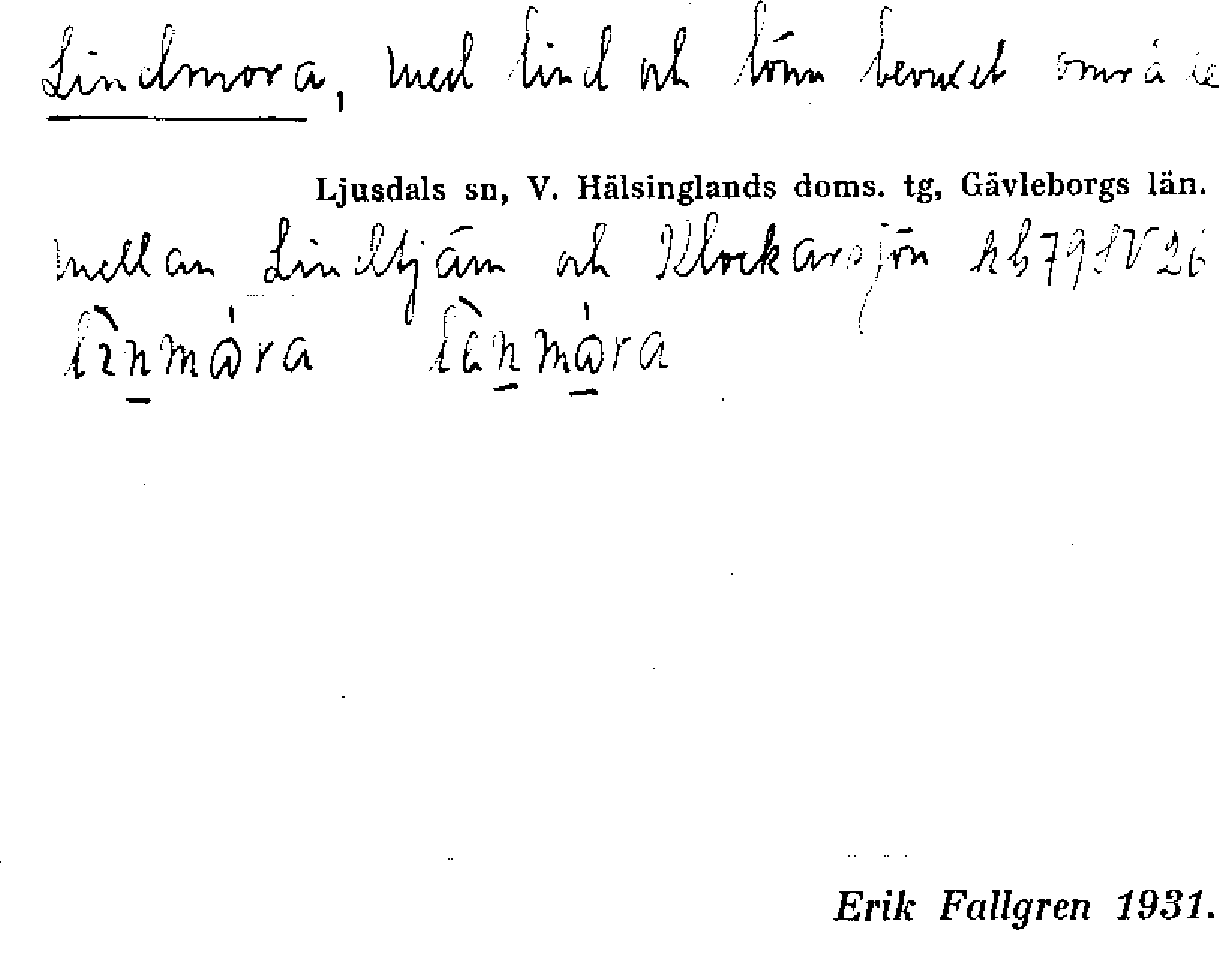 Lindmora, med lind och lönn bevuxet område
Ljusdals sn, V. Hälsinglands doms. tg, Gävleborgs län.
mellan Lindtjärn och Klockarsjön hb79SV26
Erik Fallgren 1931.